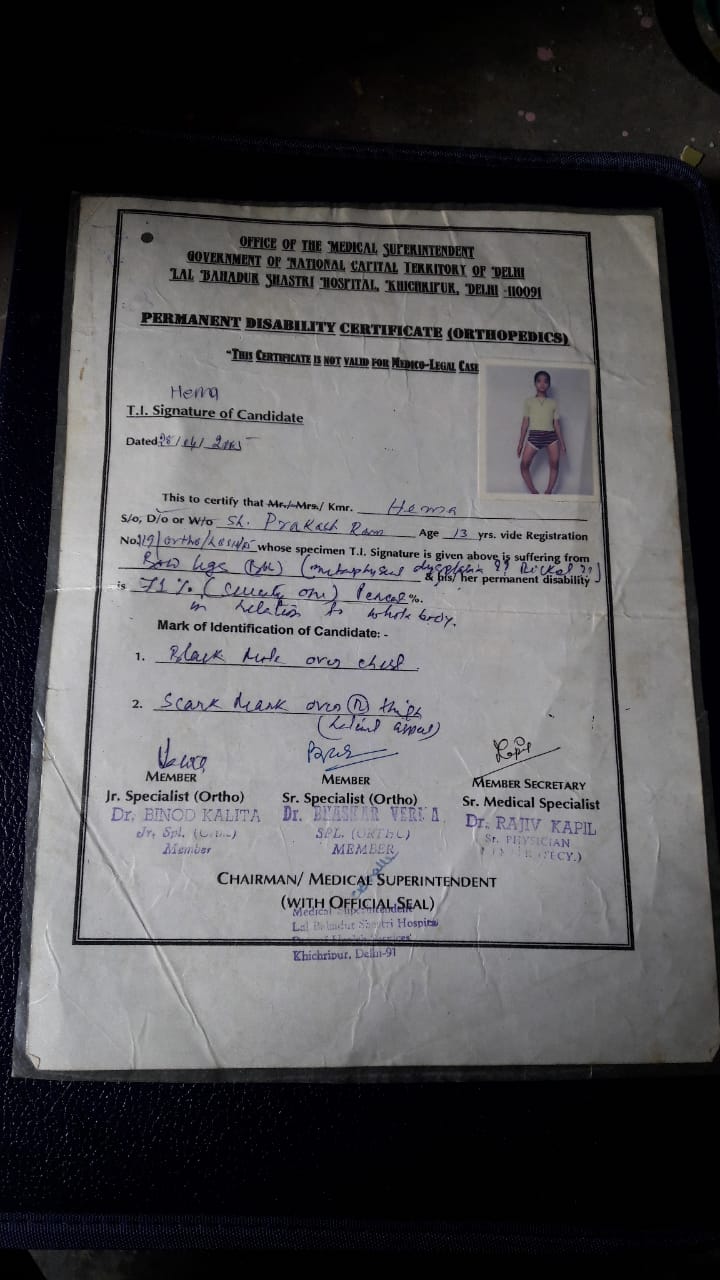 OFFICE OF THE MEDICAL SUPERINTENDENT
GOVERNMENT OF NATIONAL CAPITAL TERRITORY OF DELHI
LAL BAHADUR SHASTRI HOSPITAL, KHICHRIPUR, DELHI -110091
PERMANENT DISABILITY CERTIFICATE (ORTHOPEDICS)
"THIS CERTIFICATE IS NOT VALID FOR MEDICO-LEGAL CASE
Hema
T.I. Signature of Candidate
Dated
This to certify that Mr./Mrs./ Kmr. Hema
S/o, D/o or W/o Sh. Prakash Ram Age 13 yrs. vide Registration
No. whose specimen T.I. Signature is given above is suffering from
Bow legs (metaphyseal dysplasia ?? Ricket ??)
& his/ her permanent disability
is 71% (Seventy one) Percent %.
in relation to whole body.
Mark of Identification of Candidate: -
1. Black Mole over chest
2. Scark Mark over (R) thigh
(lateral aspect)
MEMBER MEMBER MEMBER SECRETARY
Jr. Specialist (Ortho) Sr. Specialist (Ortho) Sr. Medical Specialist
Dr. BINOD KALITA Dr. BHASKAR VERMA Dr. RAJIV KAPIL
Jr. Spl. SPL. (ORTHO) Sr. PHYSICIAN
Member MEMBER
CHAIRMAN/ MEDICAL SUPERINTENDENT
(WITH OFFICIAL SEAL)
Medical Superintendent
Lal Bahadur Shastri Hospital
Khichripur, Delhi-91